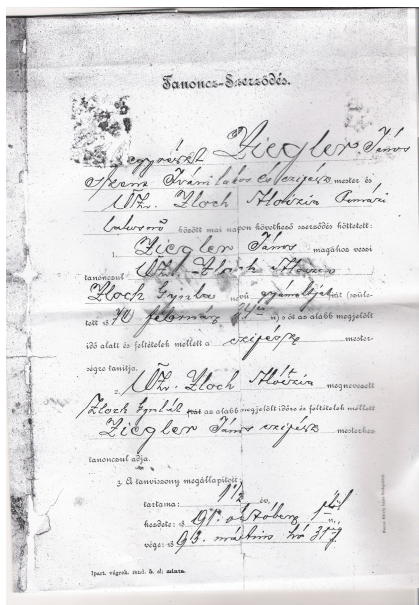 Tanoncz-Szerződés.
egyrészt Ziegler János
Szent Iváni lakos és czipész mester és
Özv. Zloch Aloizia
lakosnő között mai napon következő szerződés köttetett:
1. Ziegler János magához veszi
tanonczul Özv. Zloch
Zloch Gyula nevű gyámoltját (szüle-
tett 18 февmar n) s őt az alabb megjelölt
idő alatt és feltételek mellett a czipész mester-
ségre tanítja.
2. Özv. Zloch Aloizia megnevezett
Zloch Gyulát fiát az alabb megjelölt időre és feltételek mellett
Ziegler János czipész mesterhez
tanonczul adja.
3. A tanviszony megállapított
tartama: 1 1/2 év,
kezdete: 18 91. október 1től
vége: 18 93. mártius hó 31ig
Ipart. végreh. rend. 5. §; minta.